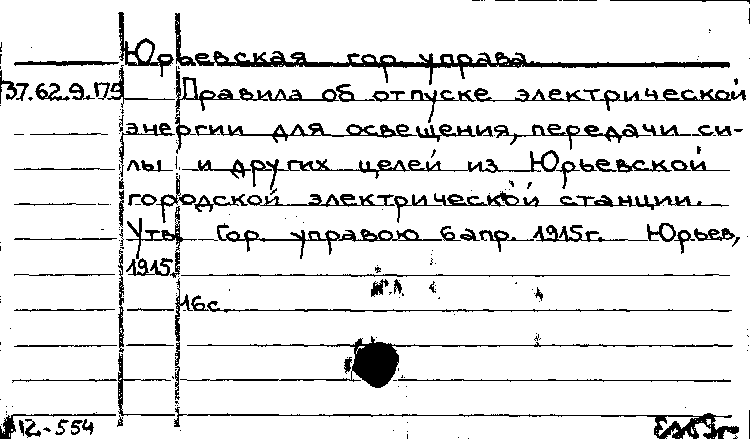 Юрьевская гор. управа
37.62.9.179 Правила об отпуске электрической
энергии для освещения, передачи си-
лы и других целей из Юрьевской
городской электрической станции.
Утв. Гор. управою 6 апр. 1915г. Юрьев,
1915.
16с.
12.-554